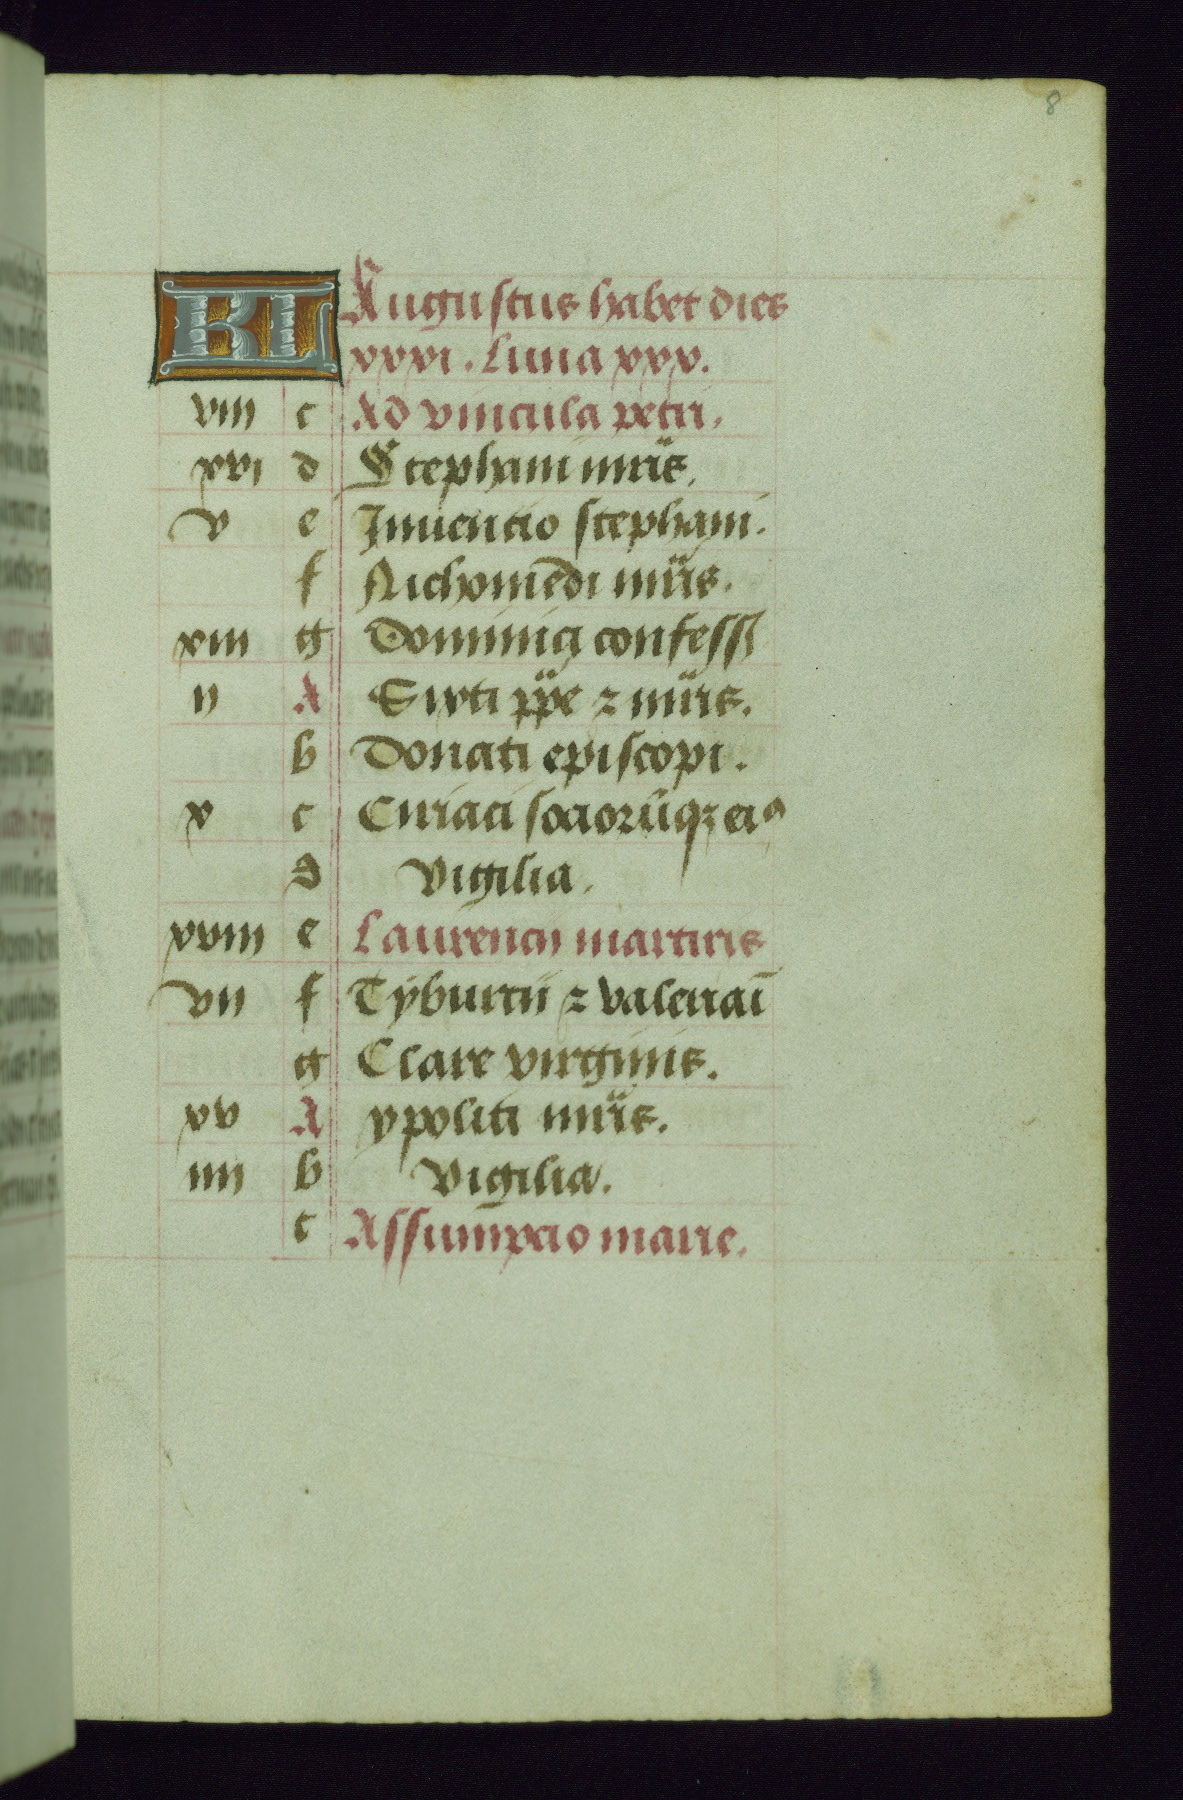 8
KL Augustus habet dies
xxxi. Luna xxx.
viii c Ad vincula petri.
xvi d Stephani mr̄is.
v e Inuentio stephani.
f Nichomēdi mr̄is.
xiii g Dominici confess
ii A Sixti pp̄e ⁊ mr̄is.
b Donati episcopi.
x c Ciriaci sociorūqꝫ eiꝰ
d Vigilia.
xviii e Laurencij martiris
vii f Tyburtii ⁊ valeriaī
g Clare virginis.
xv A ypoliti mr̄is.
iiii b Vigilia.
c Assumpcio marie.